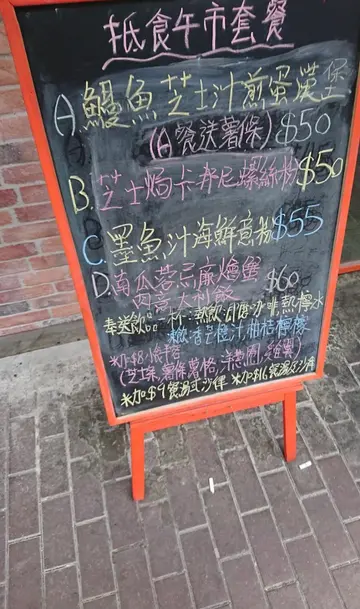 抵食午市套餐
A. 鰻魚芝士汁煎蛋漢堡
(A餐送薯條) $50
B. 芝士焗卡邦尼螺絲粉 $50
C. 墨魚汁海鮮意粉 $55
D. 南瓜 燴蟹
肉意大利飯 $60
奉送飲品一杯：熱飲:即磨咖啡,熱檸水
凍飲:香芒橙汁,柑桔檸檬
※加$8小食拼搭
(芝士條,薯條,薯格,洋蔥圈,雞翼)
※加$9餐湯或沙律 ※加$16餐湯及沙律